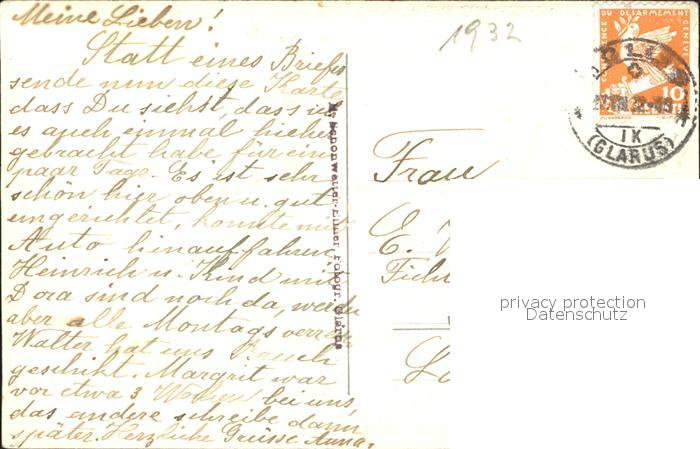 Meine Lieben!
Statt eines Briefes
sende nun diese Karte
dass Du siehst, dass ich
es auch einmal hieher
gebracht habe für ein
paar Tage. Es ist sehr
schön hier oben u. gut
eingerichtet, konnte mit
Auto hinauffahren
Heinrich u. Kind mit
Dora sind noch da, werden
aber alle Montags
Walter hat uns Rauch
geschikt. Margrit war
vor etwa 3 Wochen bei uns,
das andere schreibe dann
später. Herzliche Grüsse Anna.
Schönwetter-Elmer, Fotogr. Glarus
1932
CONFÉRENCE DU DÉSARMEMENT GENÈVE
10
HELVETIA
IX
(GLARUS)
Frau
E.
privacy protection
Datenschutz